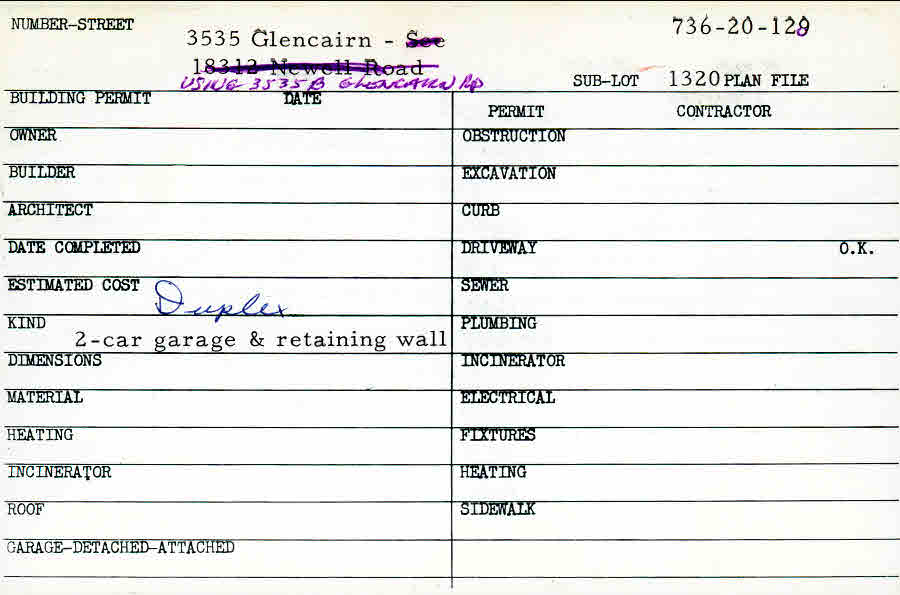 NUMBER-STREET
3535 Glencairn - See
736-20-128
18312 Newell Road
USING 3535B GLENCAIRN RD
SUB-LOT 1320 PLAN FILE
BUILDING PERMIT DATE
PERMIT CONTRACTOR
OWNER
OBSTRUCTION
BUILDER
EXCAVATION
ARCHITECT
CURB
DATE COMPLETED
DRIVEWAY O.K.
ESTIMATED COST
Duplex
SEWER
KIND
2-car garage & retaining wall
PLUMBING
DIMENSIONS
INCINERATOR
MATERIAL
ELECTRICAL
HEATING
FIXTURES
INCINERATOR
HEATING
ROOF
SIDEWALK
GARAGE-DETACHED-ATTACHED